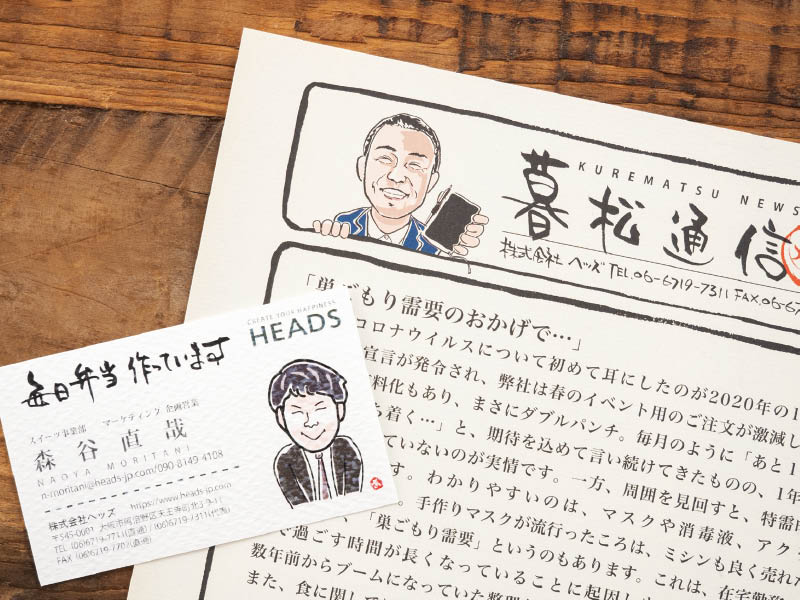 KUREMATSU NEWS
暮松通信
株式会社ヘッズ TEL.06-6719-7311 FAX.06-6
「巣ごもり需要のおかげで…」
コロナウイルスについて初めて耳にしたのが2020年の1
宣言が発令され、弊社は春のイベント用のご注文が激減し
料化もあり、まさにダブルパンチ。毎月のように「あと1
ち着く…」と、期待を込めて言い続けてきたものの、1年
ていないのが実情です。一方、周囲を見回すと、特需に
す。わかりやすいのは、マスクや消毒液、アク
手作りマスクが流行ったころは、ミシンも良く売れた
、「巣ごもり需要」というのもあります。これは、在宅勤務
で過ごす時間が長くなっていることに起因し
数年前からブームになっていた
また、食に関して
CREATE YOUR HAPPINESS
HEADS
毎日弁当作っています
スイーツ事業部 マーケティング 企画営業
森谷直哉
NAOYA MORITANI
n-moritani@heads-jp.com/090-8149-4108
株式会社ヘッズ https://www.heads-jp.com
〒545-0001 大阪市阿倍野区天王寺町北3-9-11
TEL (06)6719-7711(直通) (06)6719-7311(代表)
FAX (06)6719-7707(直通)